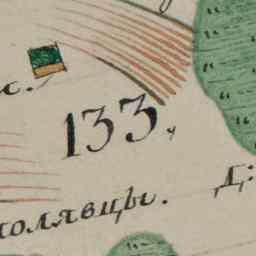 с.
133.
полявцы. Д: